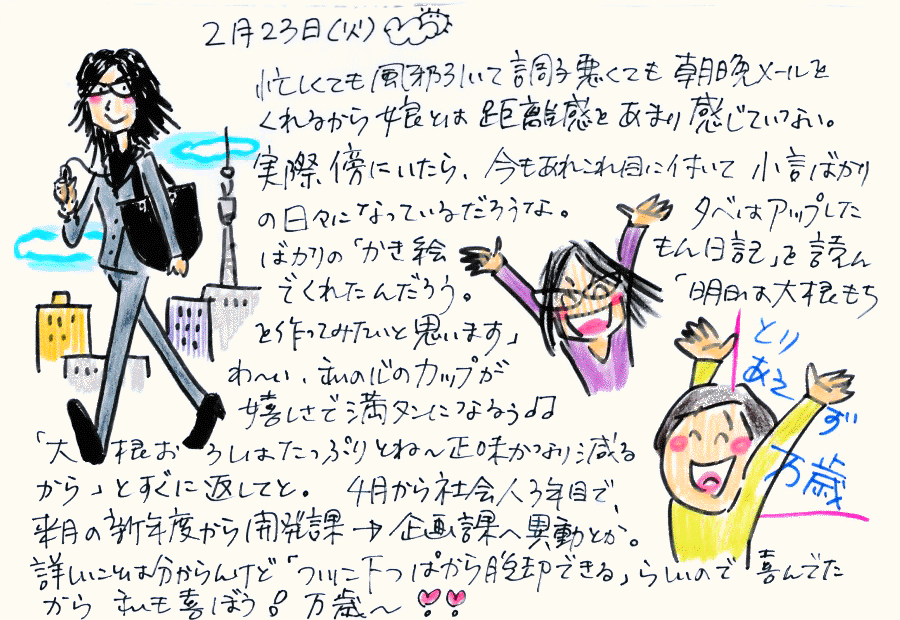 2月23日(火)
忙しくても風邪引いて調子悪くても朝晩メールを
くれるから娘とは距離感をあまり感じていない。
実際傍にいたら、今もあれこれ目に付いて小言ばかり
の日々になっているだろうな。 夕べはアップした
ばかりの「かき絵 もん日記」を読ん
でくれたんだろう。 「明日は大根もち
を作ってみたいと思います」
わ〜い、私の心のカップが
嬉しさで満タンになるぅ♫
「大根おろしはたっぷりとね〜正味かなり減る
から」とすぐに返してと。 4月から社会人3年目で、
来月の新年度から開発課→企画課へ異動とか。
詳しいことは分からんけど「ついに下っぱから脱却できる」らしいので喜んでた
から私も喜ぼう! 万歳〜
とり
あえ
ず
万歳